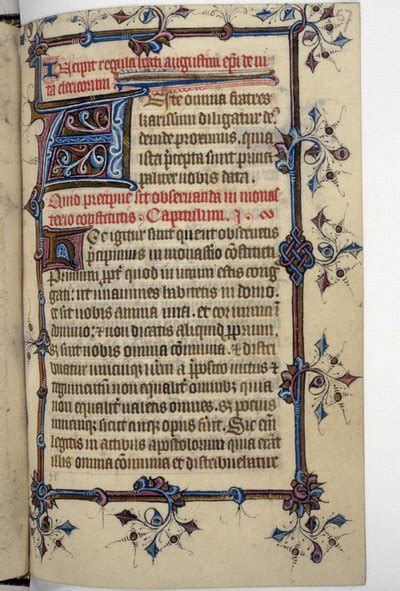 Incipit regula beati augustini epi de ui
ta clericorum
Ante omnia fratres
karissimi diligatur de
deinde proximus, quia
ista p̄cepta sunt princi
paliter nobis data.
Quid precipue sit obseruanda in monas
terio constitutis Capitulum. i.
Hec igitur sunt que ut obseruetis
p̄cipimus in monasterio constituti
Primum ppt̄ quod in unum estis cong̅
gati: ut unanimes habitetis in domo.
et sit nobis anima una. et cor unum i
domino: et non dicatis aliquid p̄prium.
Sz sunt nobis omnia cōmunia. et distri
buatur unicuique a p̄posito uictus et
non equaliter ualetis omnes. Sz pocius
unicuique sicut cuique opus fuit. Sic eni̅
legitis in actibus apostolorum quia erāt
illis omnia cōmunia et distribuebatur